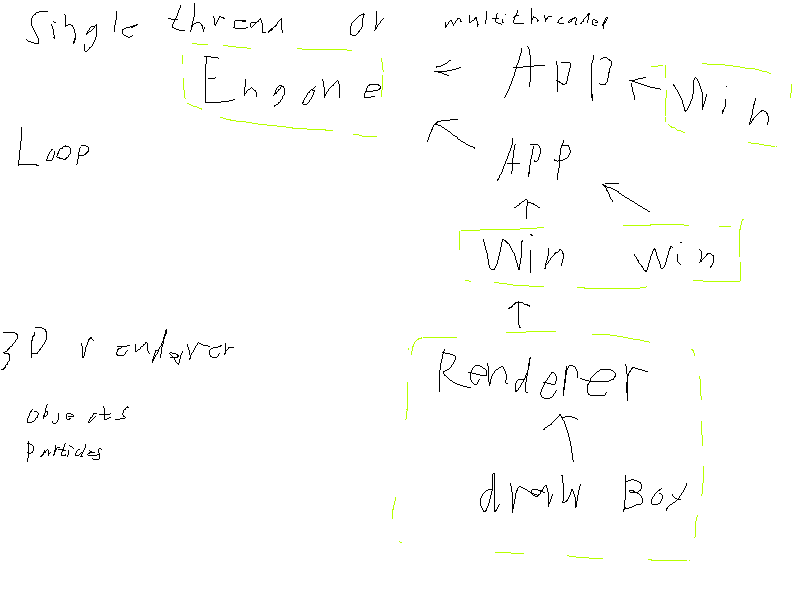 Single thread or multithreaded
Engone App Win
Loop App
Win Win
3D renderer
Renderer
Objects
particles
draw Box